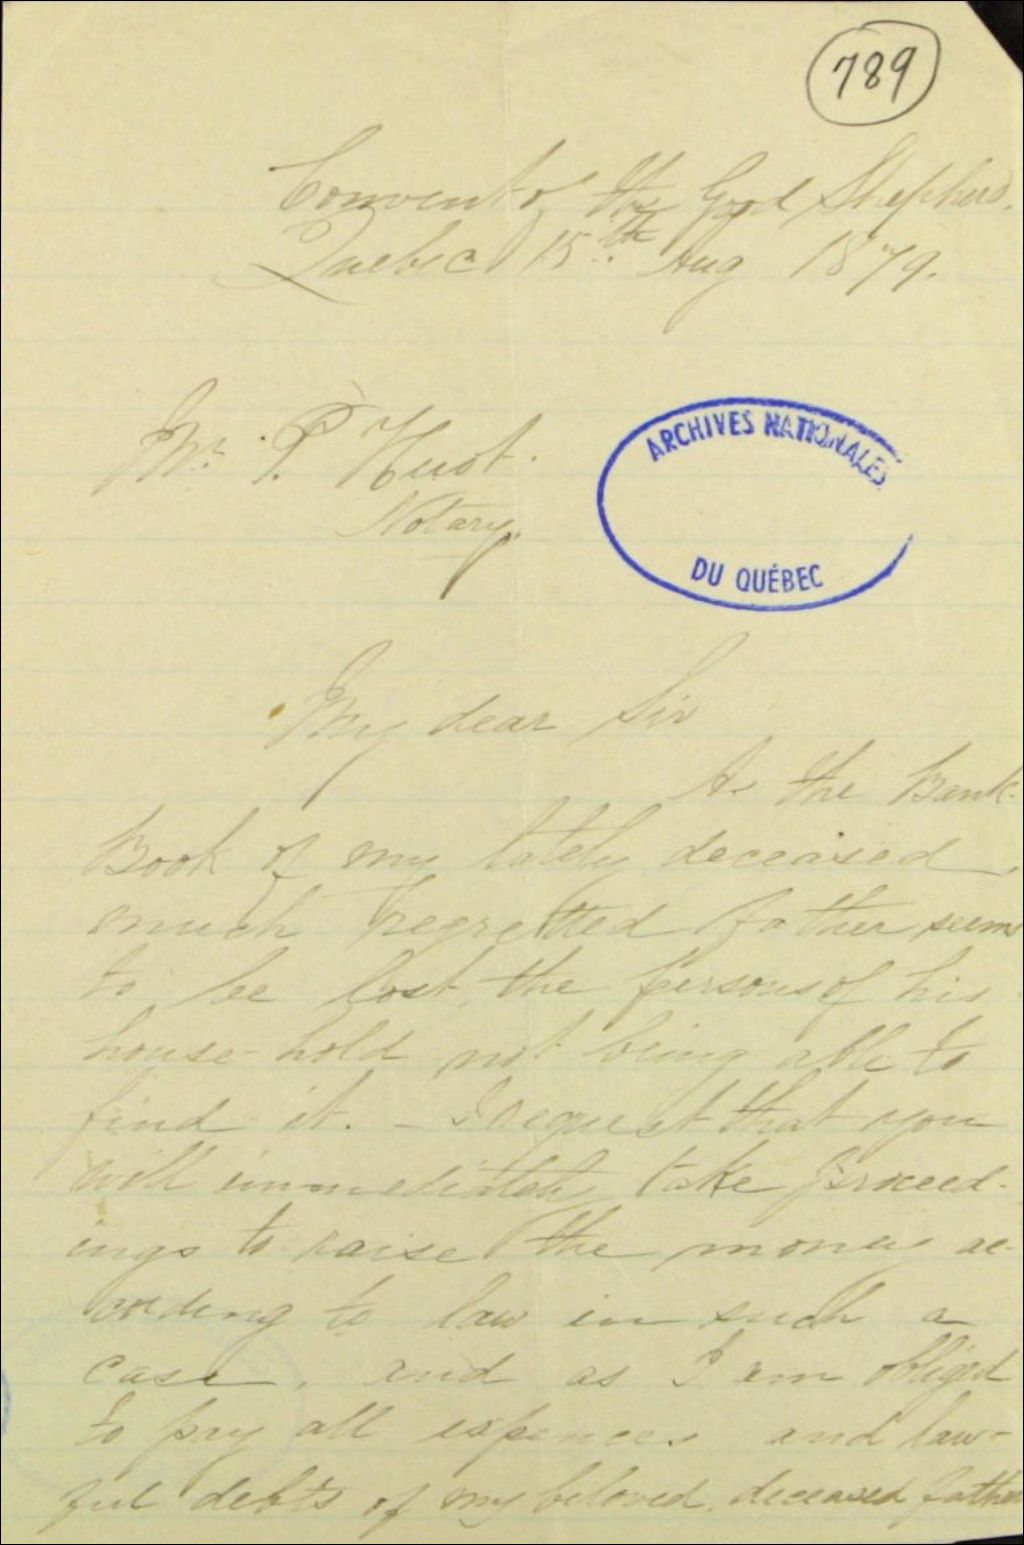 789
Convent of the Good Shepherd.
Quebec 15th Aug 1879.
Mr. P. Huot.
Notary.
ARCHIVES NATIONALES
DU QUÉBEC
My dear Sir
As the Bank-
Book of my lately deceased,
much regretted father seems
to be lost, the persons of his
house-hold not being able to
find it. - I request that you
will immediately take proceed-
ings to raise the money ac-
cording to law in such a
case, and as I am obliged
to pay all expences and law-
ful debts of my beloved deceased father